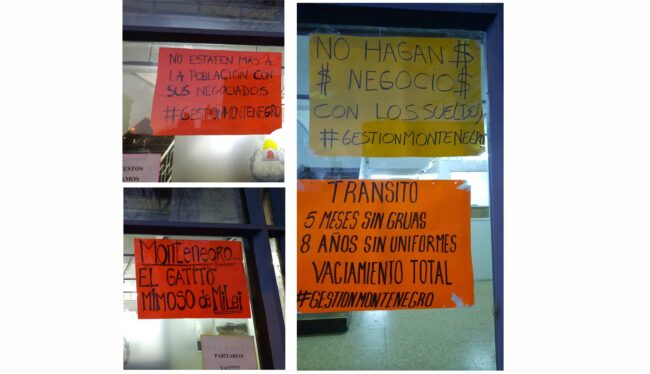 NO ESTAFEN MAS A
LA POBLACION CON
SUS NEGOCIADOS
#GESTIONMONTENEGRO
ESTOS
AMOS
Montenegro...
EL GATITO
MIMOSO de MiLei
PARITARIAS
YA!!!!!
NO HAGAN $
$ NEGOCIO$
CON LOS SUELDOS
#GESTIONMONTENEGRO
TRANSITO
5 MESES SIN GRUAS
8 AÑOS SIN UNIFORMES
VACIAMIENTO TOTAL
#GESTIONMONTENEGRO